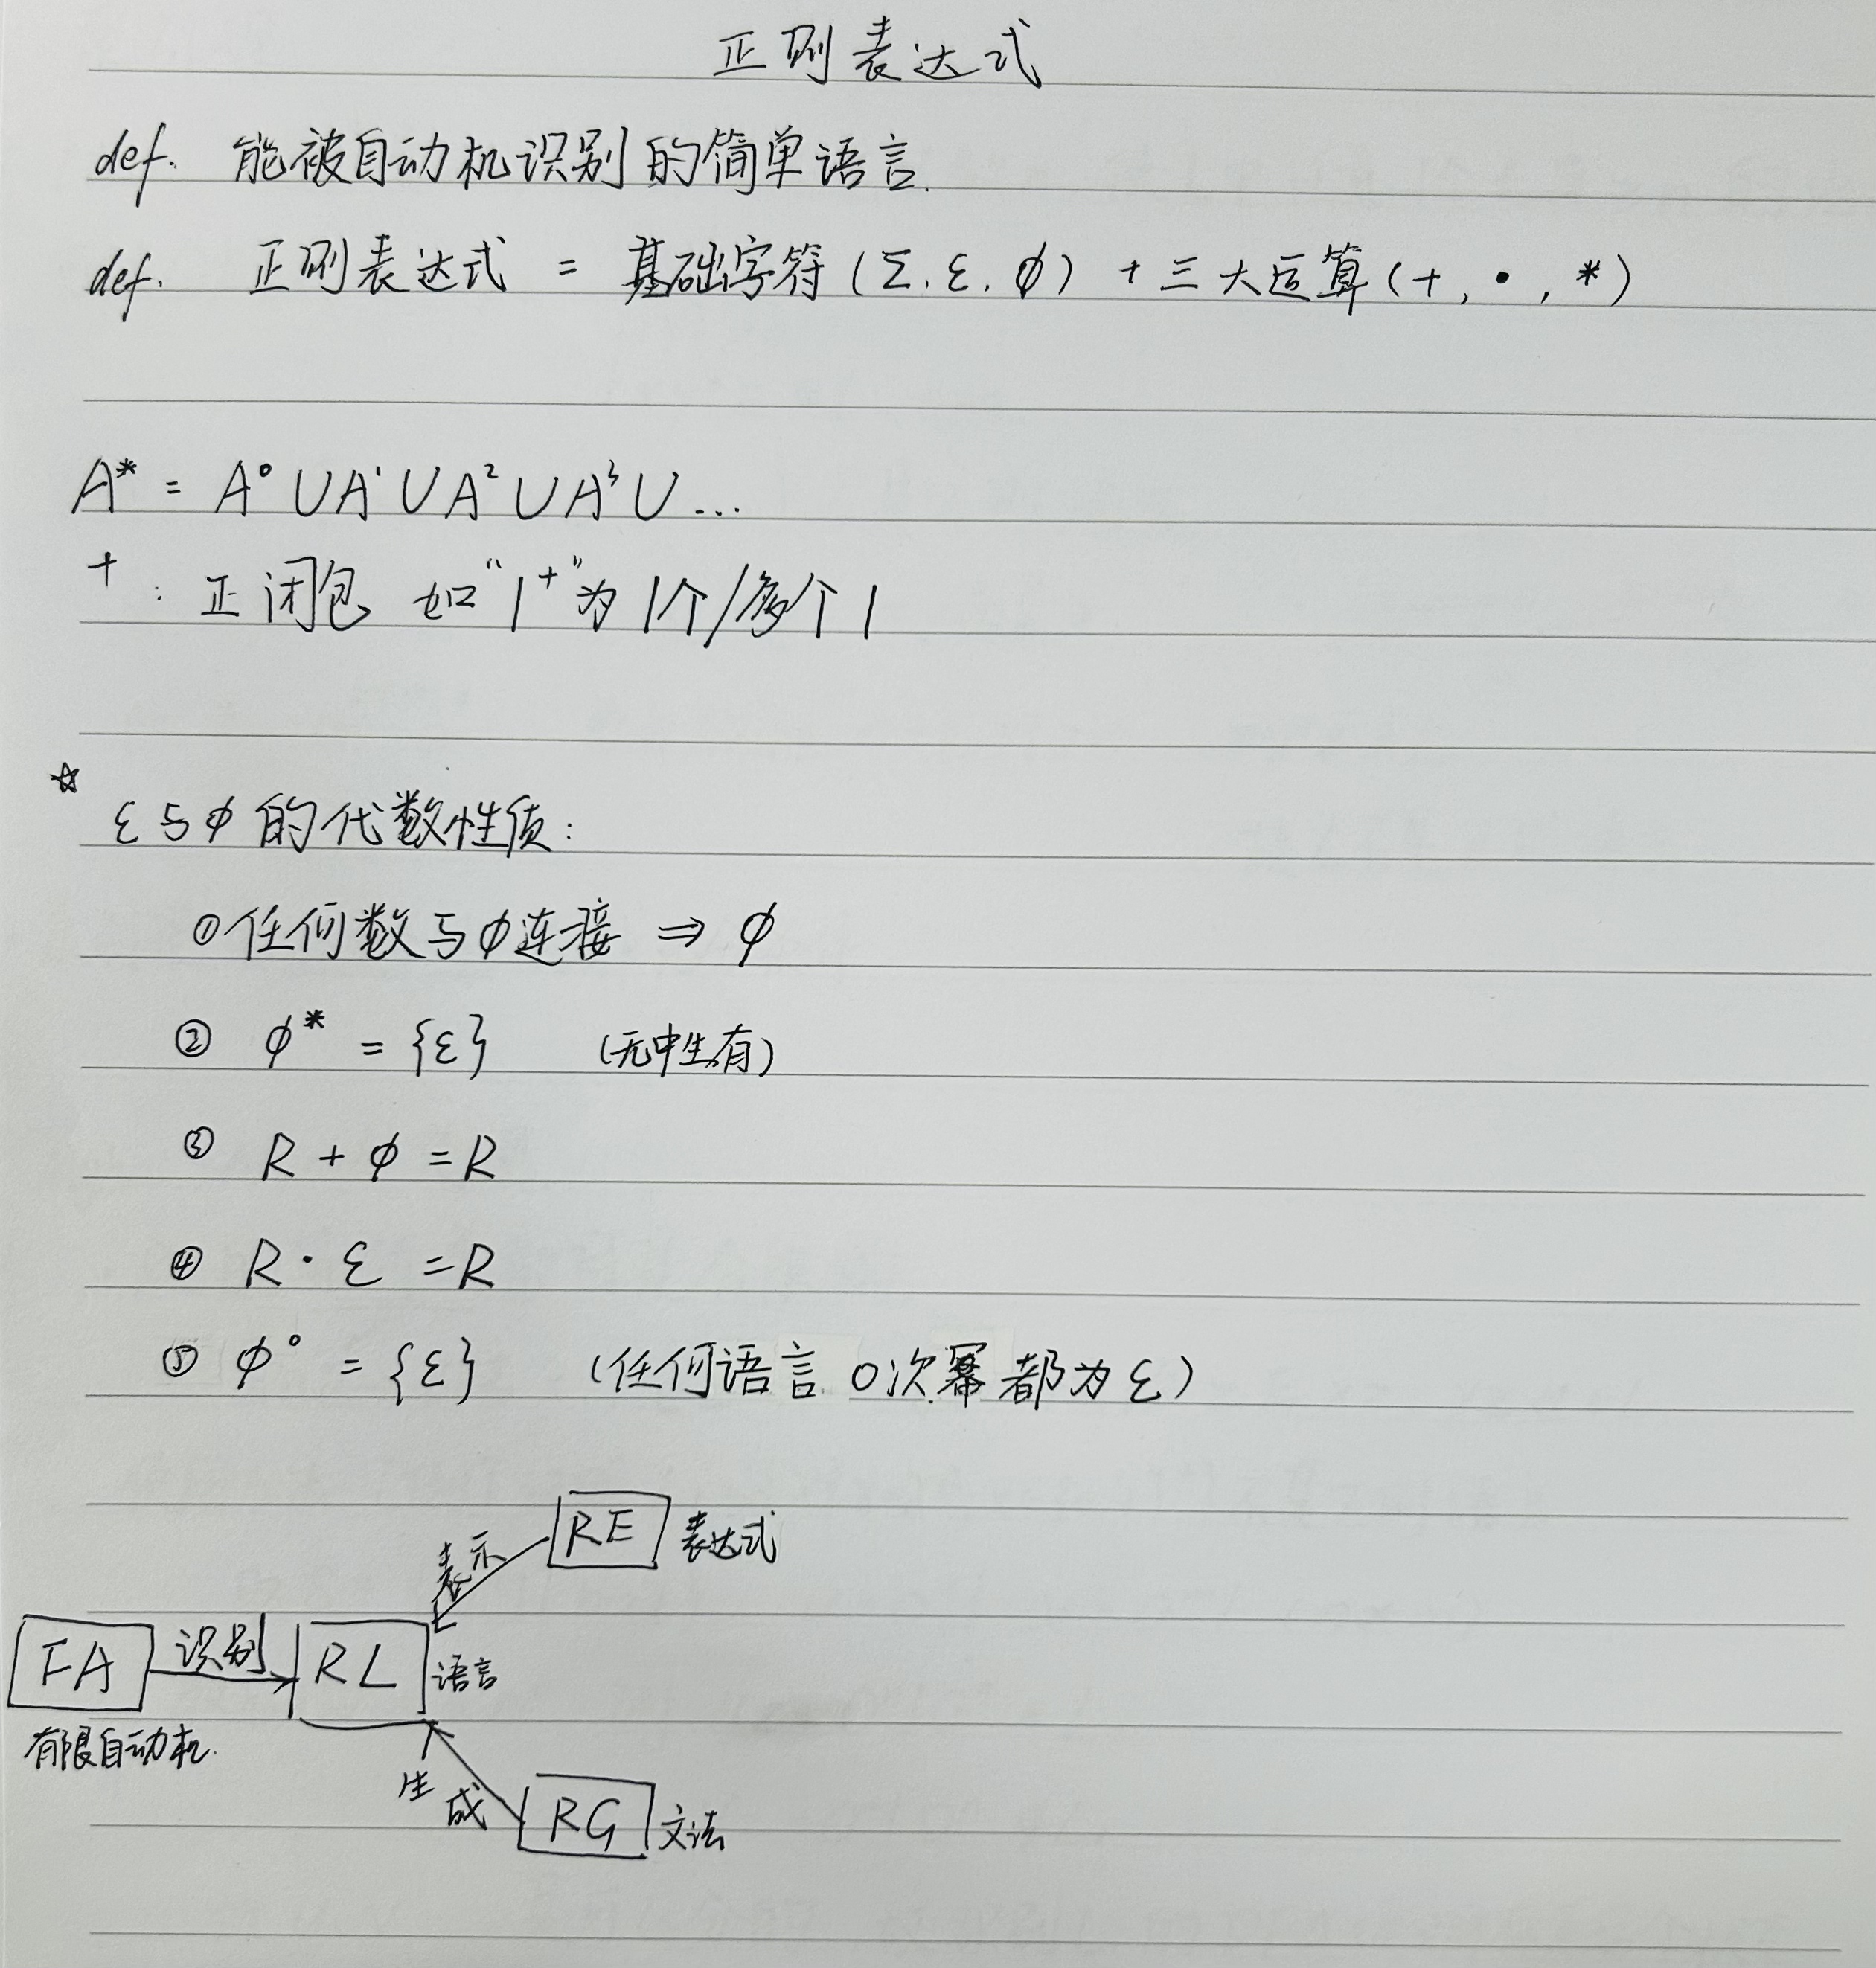 正则表达式
def. 能被自动机识别的简单语言.
def. 正则表达式 = 基础字符(Σ, ε, φ) + 三大运算(+, •, *)
A* = A⁰ ∪ A¹ ∪ A² ∪ A³ ∪ ...
⁺ : 正闭包 如"1⁺"为1个/多个1
☆
ε与φ的代数性质:
①任何数与φ连接 ⇒ φ
② φ* = {ε} (无中生有)
③ R + φ = R
④ R · ε = R
⑤ φ⁰ = {ε} (任何语言 0次幂都为ε)
RE 表达式
表示
FA 识别 RL 语言
有限自动机.
生成
RG 文法